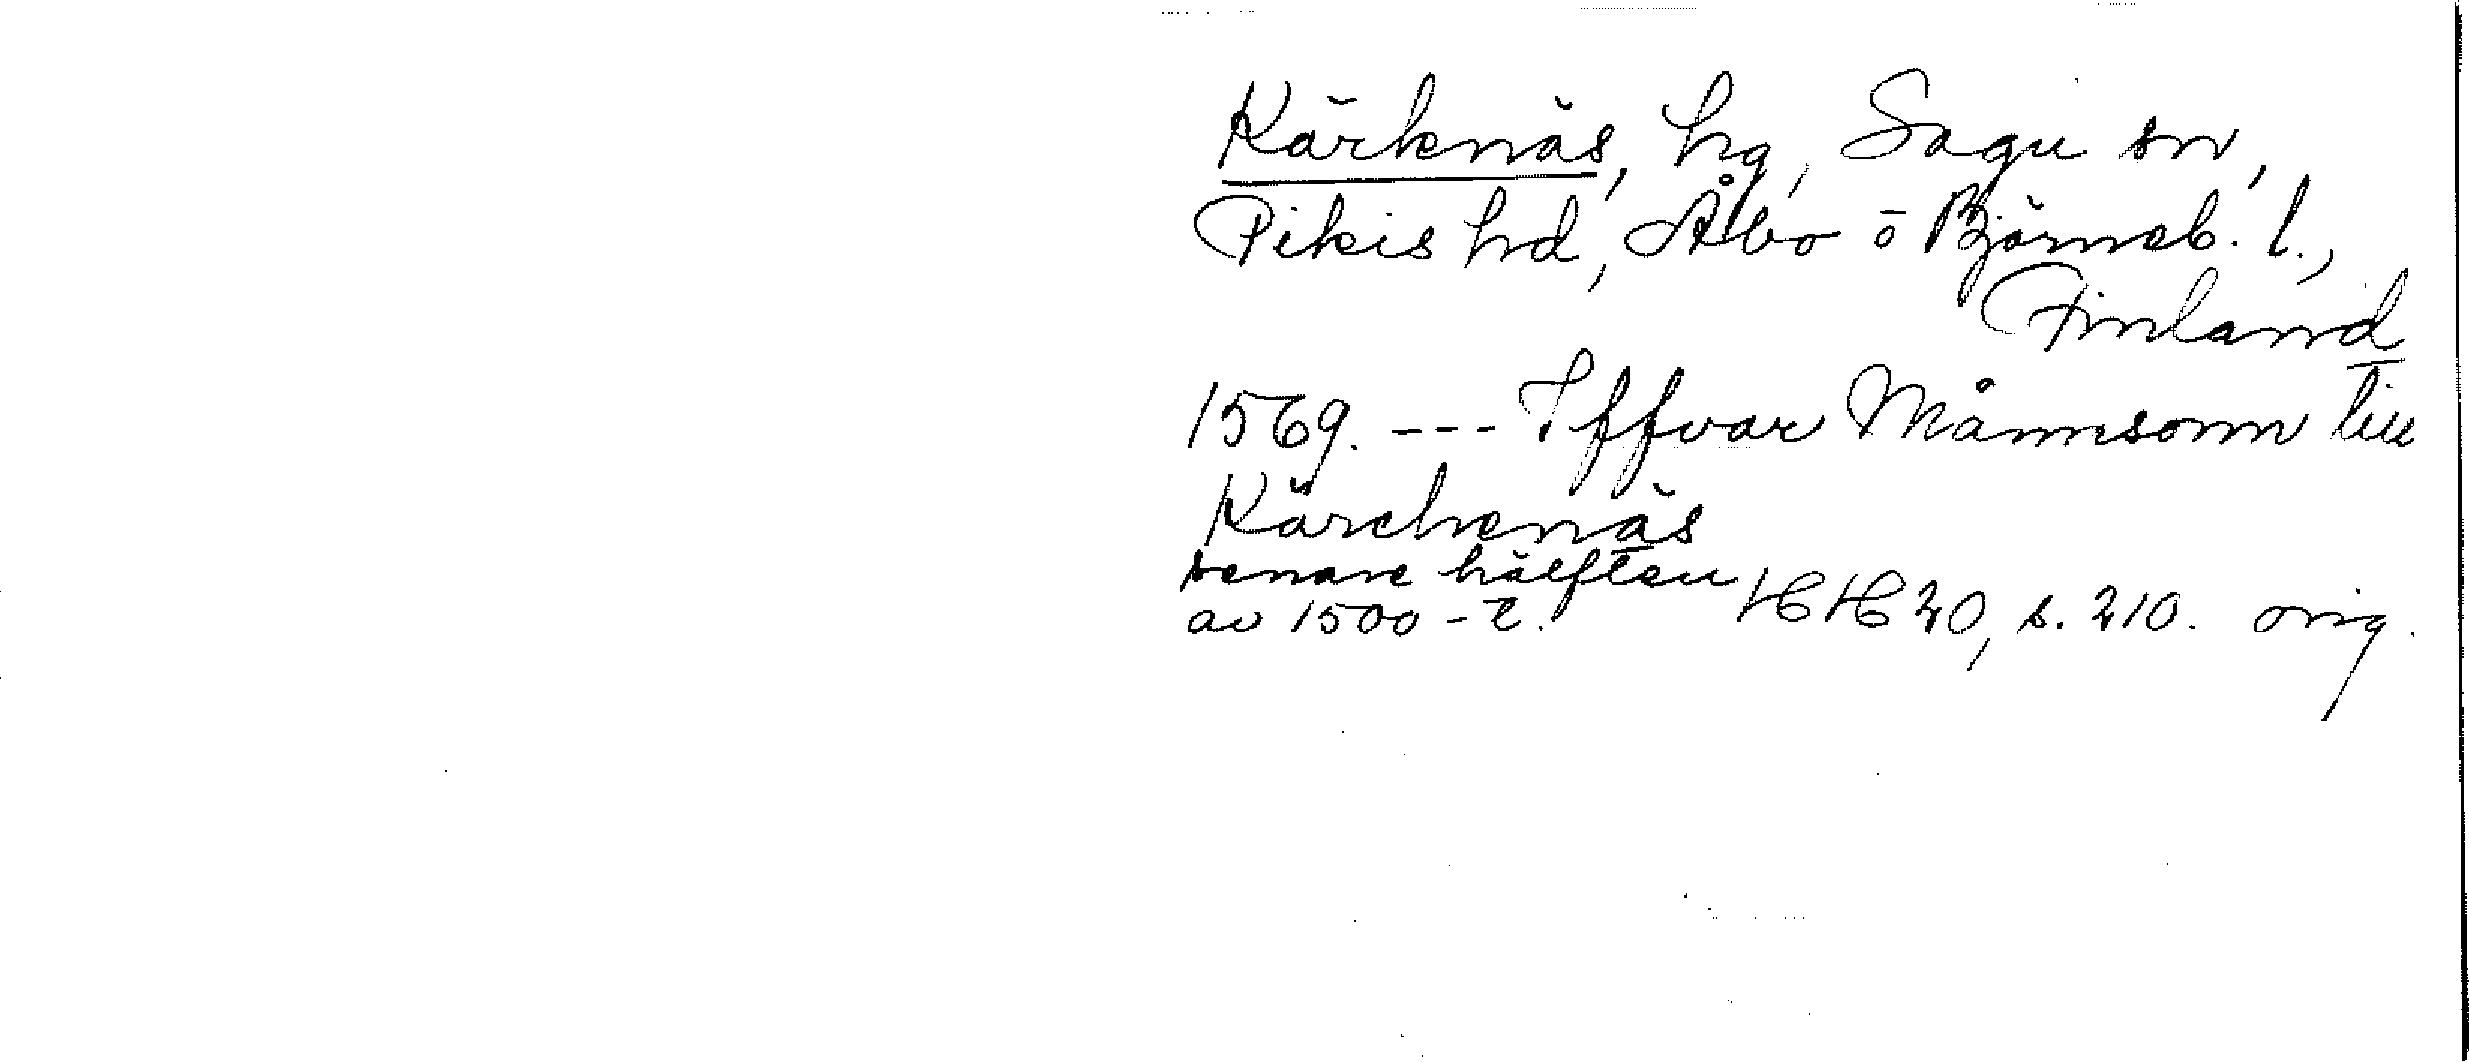 Kärknäs, hg, Sagu sn,
Pikis hd, Åbo o Björneb. l.,
Finland
1569. --- Iffvar Månnsonn till
Kärchenäs
senare hälften
av 1500-t. HH 20, s. 210. orig.